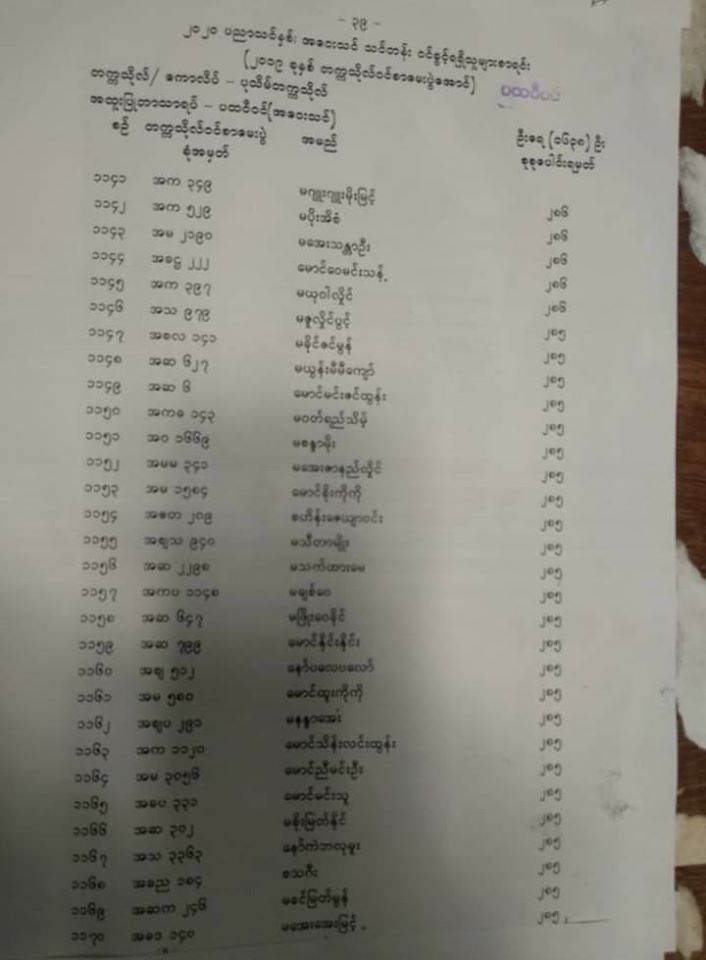 - ၃၉ -
၂၀၂၀ ပညာသင်နှစ်၊ အဝေးသင် သင်တန်း ဝင်ခွင့်ရရှိသူများစာရင်း
(၂၀၁၉ ခုနှစ် တက္ကသိုလ်ဝင်စာမေးပွဲအောင်)
တက္ကသိုလ်/ ကောလိပ် - ပုသိမ်တက္ကသိုလ် ပထဝီဝင်
အထူးပြုဘာသာရပ် - ပထဝီဝင်(အဝေးသင်) ဦးရေ (၁၆၃၈) ဦး
စဉ် တက္ကသိုလ်ဝင်စာမေးပွဲ အမည် စုစုပေါင်းရမှတ်
ခုံအမှတ်
၁၁၄၁ အက ၃၄၉ မဂျူးဂျူးမိုးမြင့် ၂၈၆
၁၁၄၂ အက ၅၂၉ မပိုးအိစံ ၂၈၆
၁၁၄၃ အမ ၂၁၉၀ မအေးသန္တာဦး ၂၈၆
၁၁၄၄ အခဋ္ဌ ၂၂၂ မောင်ဝေမင်းသန့် ၂၈၆
၁၁၄၅ အက ၃၉၇ မယုဝါလှိုင် ၂၈၆
၁၁၄၆ အသ ၉၇၉ မဇူလှိုင်ပွင့် ၂၈၅
၁၁၄၇ အစလ ၁၄၁ မခိုင်ဇင်မွန် ၂၈၅
၁၁၄၈ အဆ ၆၂၇ မယွန်းမီမီကျော် ၂၈၅
၁၁၄၉ အဆ ၆ မောင်မင်းဇင်ထွန်း ၂၈၅
၁၁၅၀ အကခ ၁၄၃ မဝတ်ရည်သိမ့် ၂၈၅
၁၁၅၁ အဝ ၁၆၆၉ မစန္ဒာမိုး ၂၈၅
၁၁၅၂ အမမ ၃၄၁ မအေးဇာနည်လှိုင် ၂၈၅
၁၁၅၃ အမ ၁၅၈၄ မောင်စိုးကိုကို ၂၈၅
၁၁၅၄ အဇတ ၂၀၉ စဟိန်းဇေယျာဝင်း ၂၈၅
၁၁၅၅ အဈသ ၉၄၀ မသီတာမျိုး ၂၈၅
၁၁၅၆ အဆ ၂၂၉၈ မသက်ထားမေ ၂၈၅
၁၁၅၇ အကပ ၁၁၄၈ မချစ်ဝေ ၂၈၅
၁၁၅၈ အဆ ၆၄၇ မဖြိုးဝေခိုင် ၂၈၅
၁၁၅၉ အဆ ၇၉၉ မောင်နိုင်းနိုင်း ၂၈၅
၁၁၆၀ အဈ ၅၁၂ နော်ပလေပလော် ၂၈၅
၁၁၆၁ အမ ၅၈၀ မောင်ထူးကိုကို ၂၈၅
၁၁၆၂ အဈပ ၂၉၁ မနန္ဒာအေး ၂၈၅
၁၁၆၃ အက ၁၁၂၀ မောင်သိန်းလင်းထွန်း ၂၈၅
၁၁၆၄ အမ ၃၀၅၆ မောင်ညီမင်းဦး ၂၈၅
၁၁၆၅ အခပ ၃၃၁ မောင်မင်းသူ ၂၈၅
၁၁၆၆ အဆ ၃၀၂ မစိုးမြတ်နိုင် ၂၈၅
၁၁၆၇ အသ ၃၃၆၃ နော်ကဲဘလုမူး ၂၈၅
၁၁၆၈ အခည ၁၈၄ စသဂီး ၂၈၅
၁၁၆၉ အဆက ၂၄၆ မခင်မြတ်မွန် ၂၈၅
၁၁၇၀ အခဒ ၁၄၀ မအေးအေးမြင့် ၂၈၅